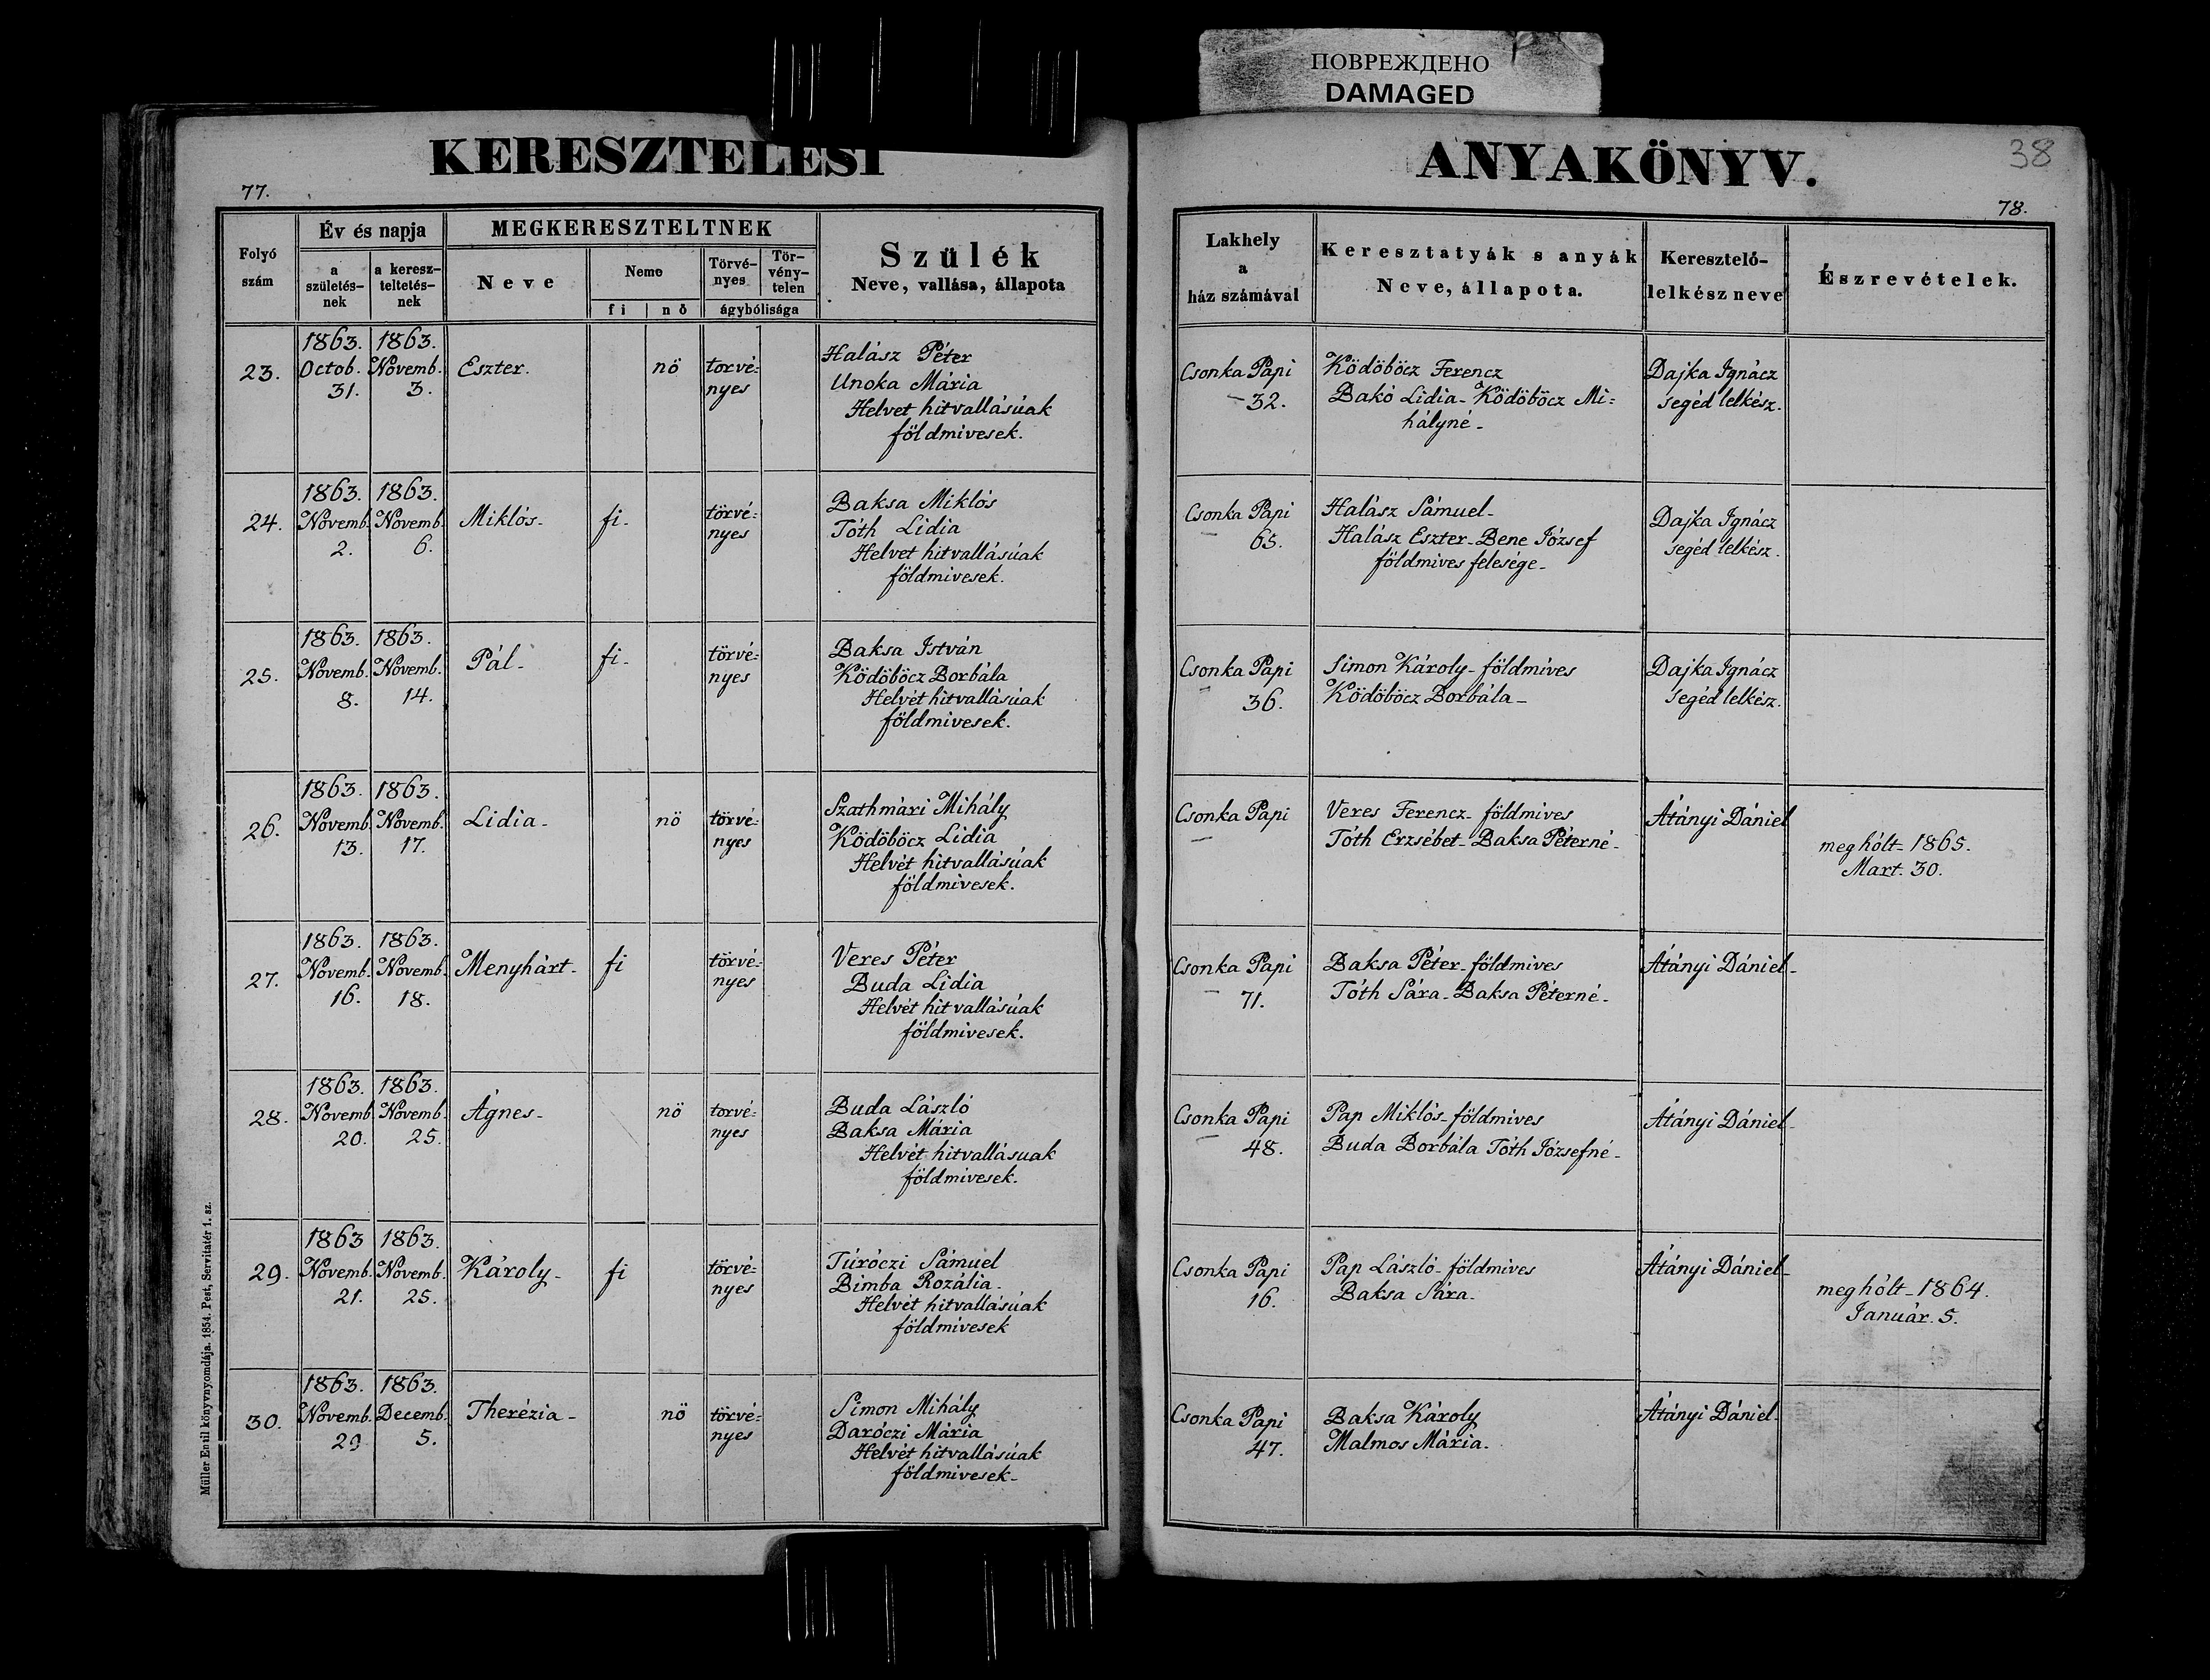 ПОВРЕЖДЕНО
DAMAGED
KERESZTELÉSI
ANYAKÖNYV.
38
77.
78.
Folyó szám
Év és napja
a születés-nek
a keresz-teltetés-nek
MEGKERESZTELTNEK
Neve
Neme
fi
nő
Törvé-nyes
Tör-vény-telen
ágybólisága
Szülék
Neve, vallása, állapota
Lakhely
a
ház számával
Keresztatyák s anyák
Neve, állapota.
Keresztelő-
lelkész neve
Észrevételek.
23.
1863. Octob. 31.
1863. Novemb. 3.
Eszter.
nö
torvé=
nyes
Halász Péter
Unoka Mária
Helvet hitvallásúak
földmivesek.
Csonka Papi
32.
Ködöböcz Ferencz
Bakó Lidia - Ködöböcz Mi=
hályné -
Dajka Ignácz
segéd lelkész.
24.
1863. Novemb. 2.
1863. Novemb. 6.
Miklós -
fi -
törvé=
nyes
Baksa Miklós
Tóth Lidia
Helvet hitvallásúak
földmivesek.
Csonka Papi
65.
Halász Sámuel -
Halász Eszter - Bene József
földmives felesége -
Dajka Ignácz
segéd lelkész.
25.
1863. Novemb. 8.
1863. Novemb. 14.
Pál -
fi -
törvé=
nyes
Baksa István
Ködöböcz Borbála
Helvét hitvallásúak
földmivesek.
Csonka Papi
36.
Simon Károly - földmives
Ködöböcz Borbála -
Dajka Ignácz
segéd lelkész.
26.
1863. Novemb. 13.
1863. Novemb. 17.
Lidia -
nö
törvé=
nyes
Szathmári Mihály
Ködöböcz Lidia
Helvét hitvallásúak
földmivesek.
Csonka Papi
Veres Ferencz - földmives
Tóth Erzsébet - Baksa Péterné -
Átányi Dániel
meghólt - 1865.
Mart. 30.
27.
1863. Novemb. 16.
1863. Novemb. 18.
Menyhárt -
fi
törvé=
nyes
Veres Péter
Buda Lidia
Helvét hitvallásúak
földmivesek.
Csonka Papi
71.
Baksa Péter - földmives
Tóth Sára - Baksa Péterné -
Átányi Dániel -
28.
1863. Novemb. 20.
1863. Novemb. 25.
Ágnes -
nö
torvé=
nyes
Buda László
Baksa Mária
Helvét hitvallásuak
földmivesek.
Csonka Papi
48.
Pap Miklós - földmives
Buda Borbála Tóth Józsefné -
Átányi Dániel -
29.
1863 Novemb. 21.
1863. Novemb. 25.
Károly -
fi
törvé=
nyes
Túróczi Sámuel
Bimba Rozália -
Helvét hitvallásúak
földmivesek
Csonka Papi
16.
Pap László - földmives
Baksa Sára -
Átányi Dániel -
meghólt - 1864.
Január. 5.
30.
1863. Novemb. 29
1863. Decemb. 5.
Therézia -
nö
törvé=
nyes
Simon Mihály
Daróczi Mária
Helvét hitvallásúak
földmivesek -
Csonka Papi
47.
Baksa Károly
Malmos Mária.
Átányi Dániel -
Müller Emil könyvnyomdája. 1854. Pest, Servitatér 1. sz.